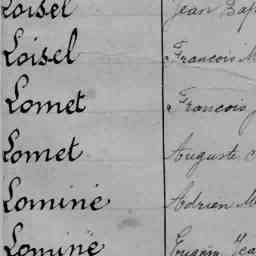 Loisel Jean Bap
Loisel Francois M
Lomet Francois
Lomet Auguste
Lominé Adrien M
Lominé Eugène Jea